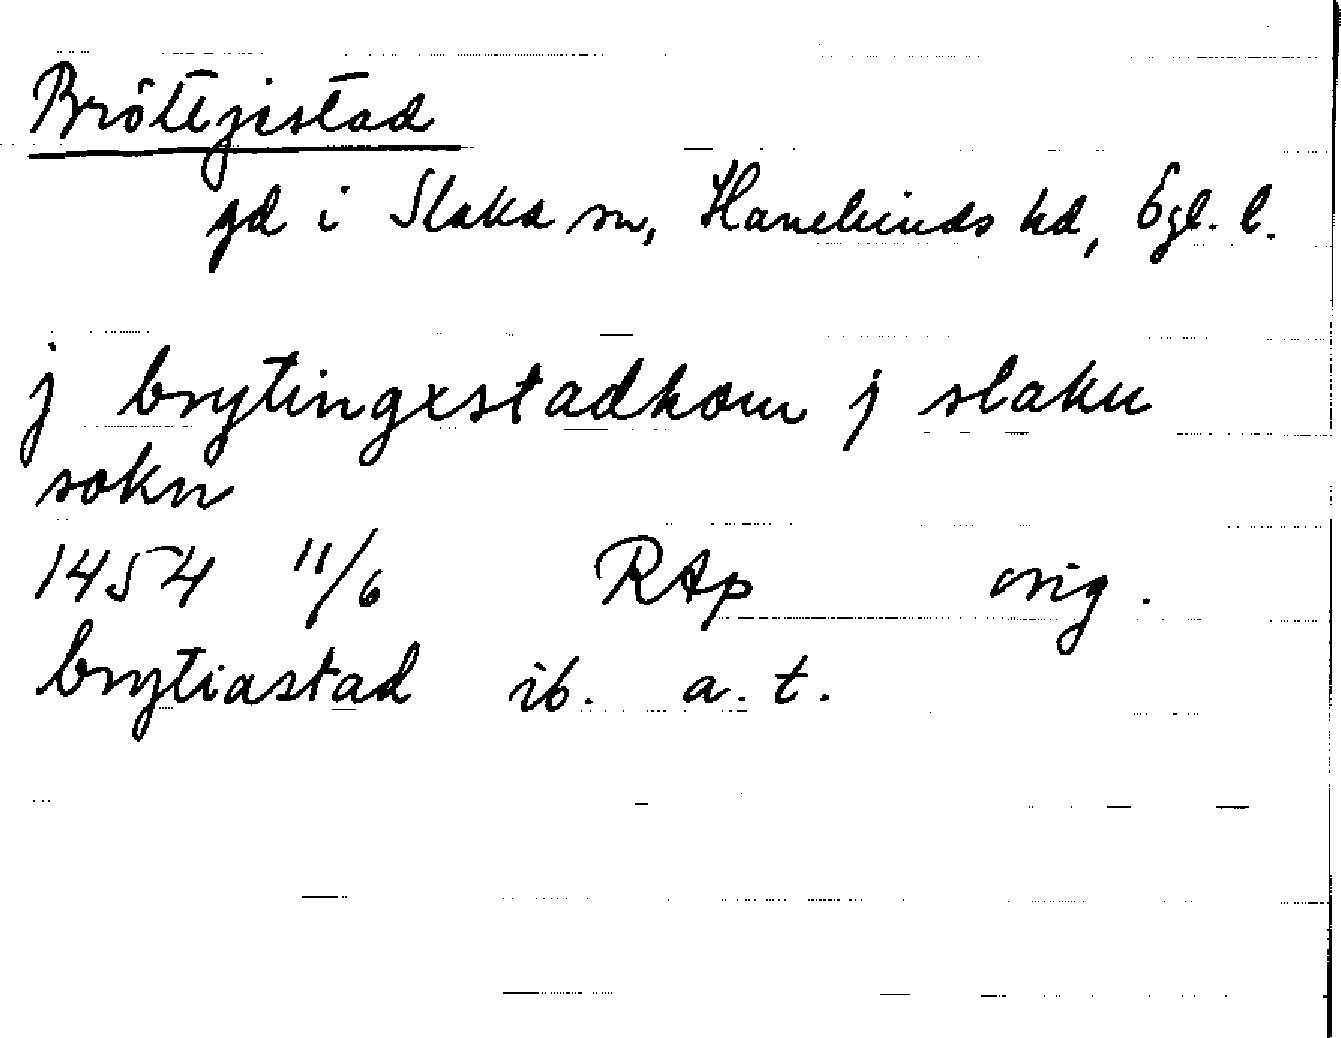 Bröttjestad
gd i Slaka sn, Hanekinds hd, Ögl. l.
j brytingxstadhom j slaku
sokn
1454 11/6 RAp orig.
brytiastad ib. a. t.